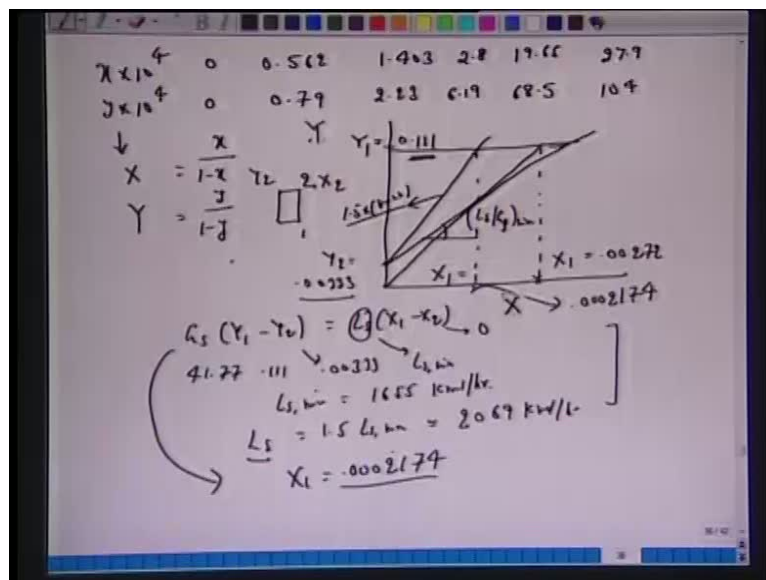 x × 10^4 0 0.562 1.403 2.8 19.66 27.9
y × 10^4 0 0.79 2.23 6.19 68.5 104
↓
X = x/1-x
Y = y/1-y
Y2 2, X2
1
Y
Y1 = 0.111
(Ls/Gs)min
Y2 =
.00333
X1 =
X1 = .00272
X → .0002174
Gs (Y1 - Y2) = Ls (X1 - X2) → 0
41.77 .111 .00333 Ls, min
Ls, min = 1655 Kmol/hr.
Ls = 1.5 Ls, min = 2069 Kmol/h
X1 = .0002174